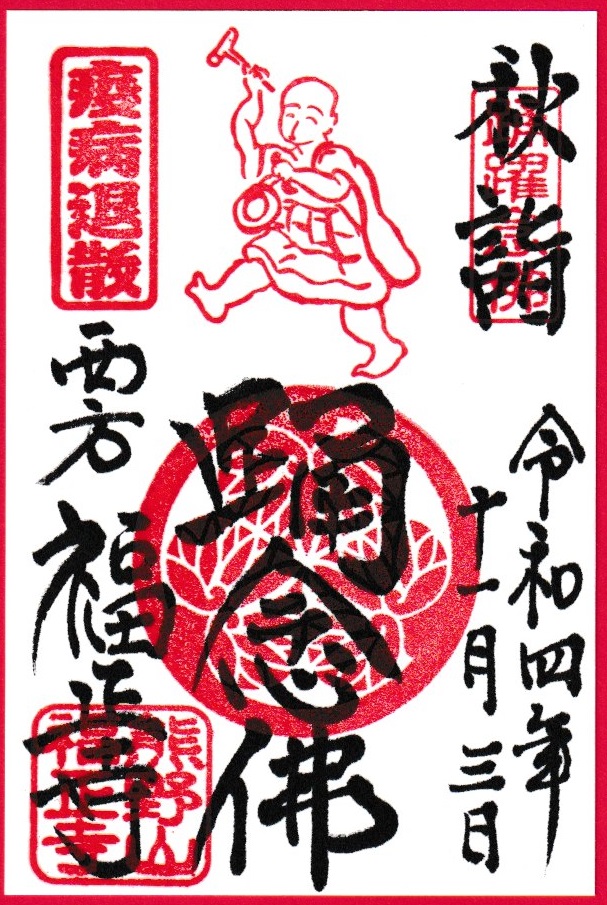 秋詣
踊躍念佛
令和四年
十一月三日
踊念佛
疫病退散
西方
福正寺
熊野山
福正寺